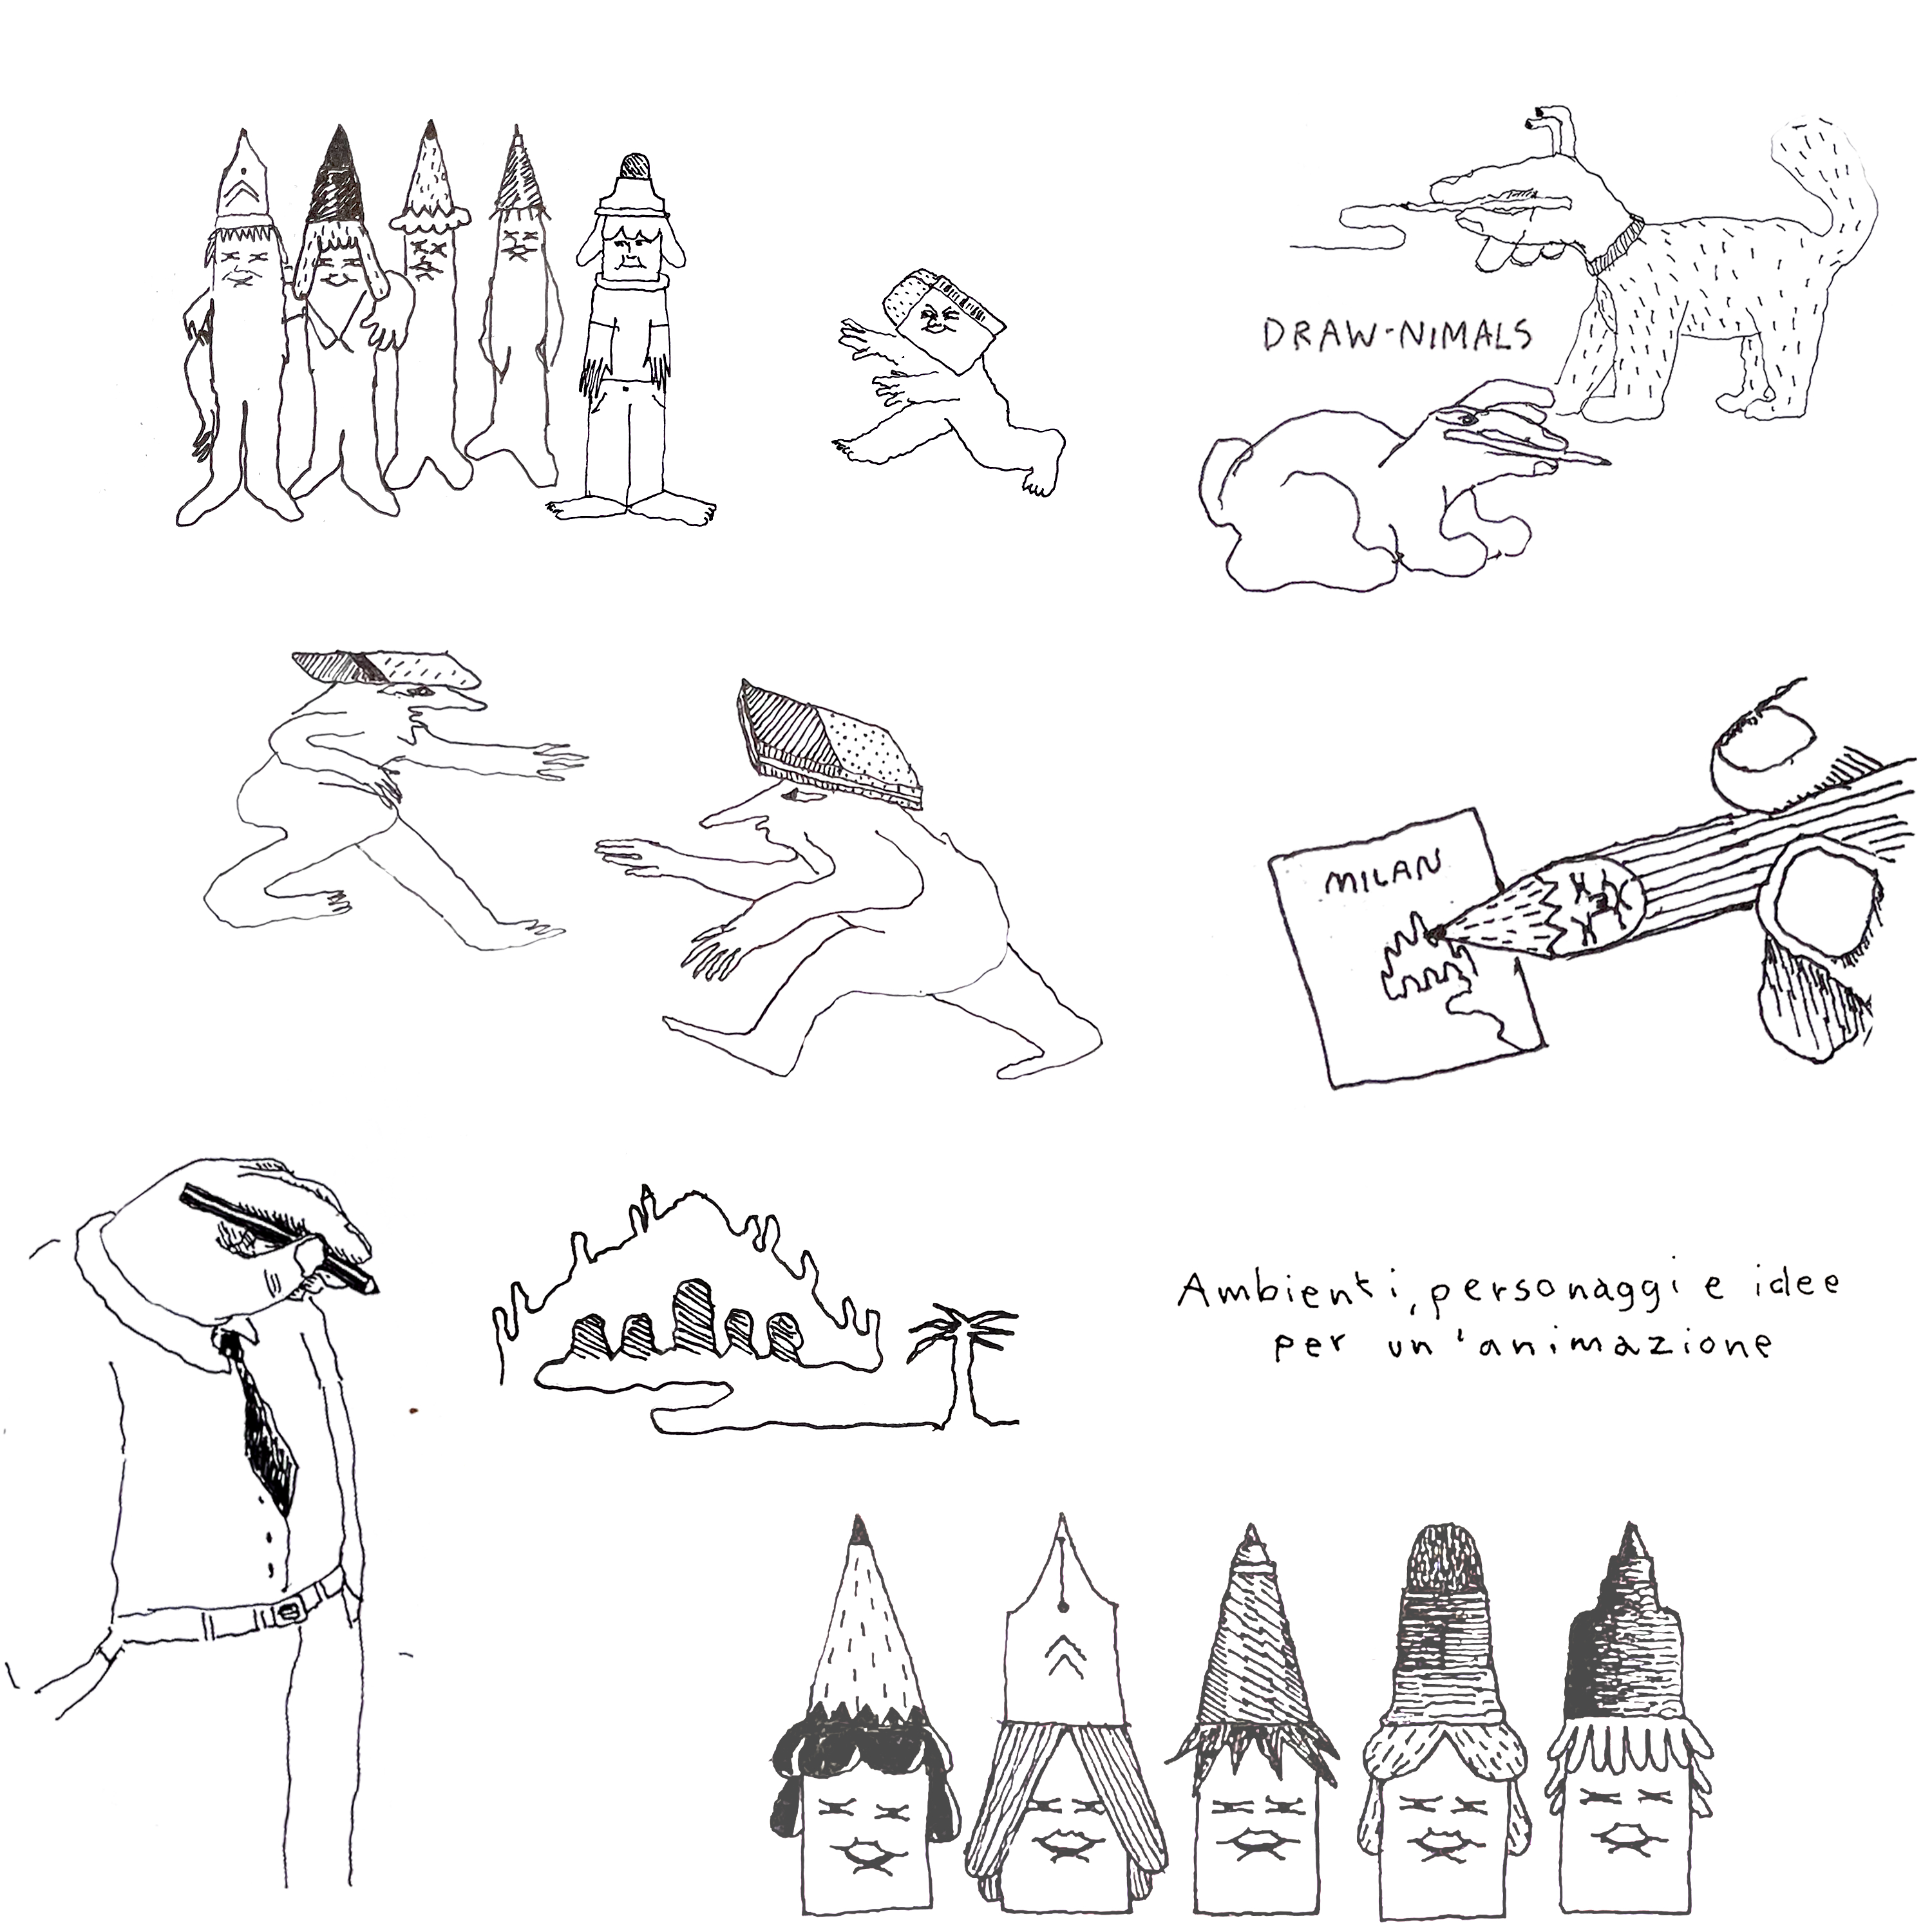 DRAW-NIMALS
MILAN
Ambienti, personaggi e idee
per un'animazione